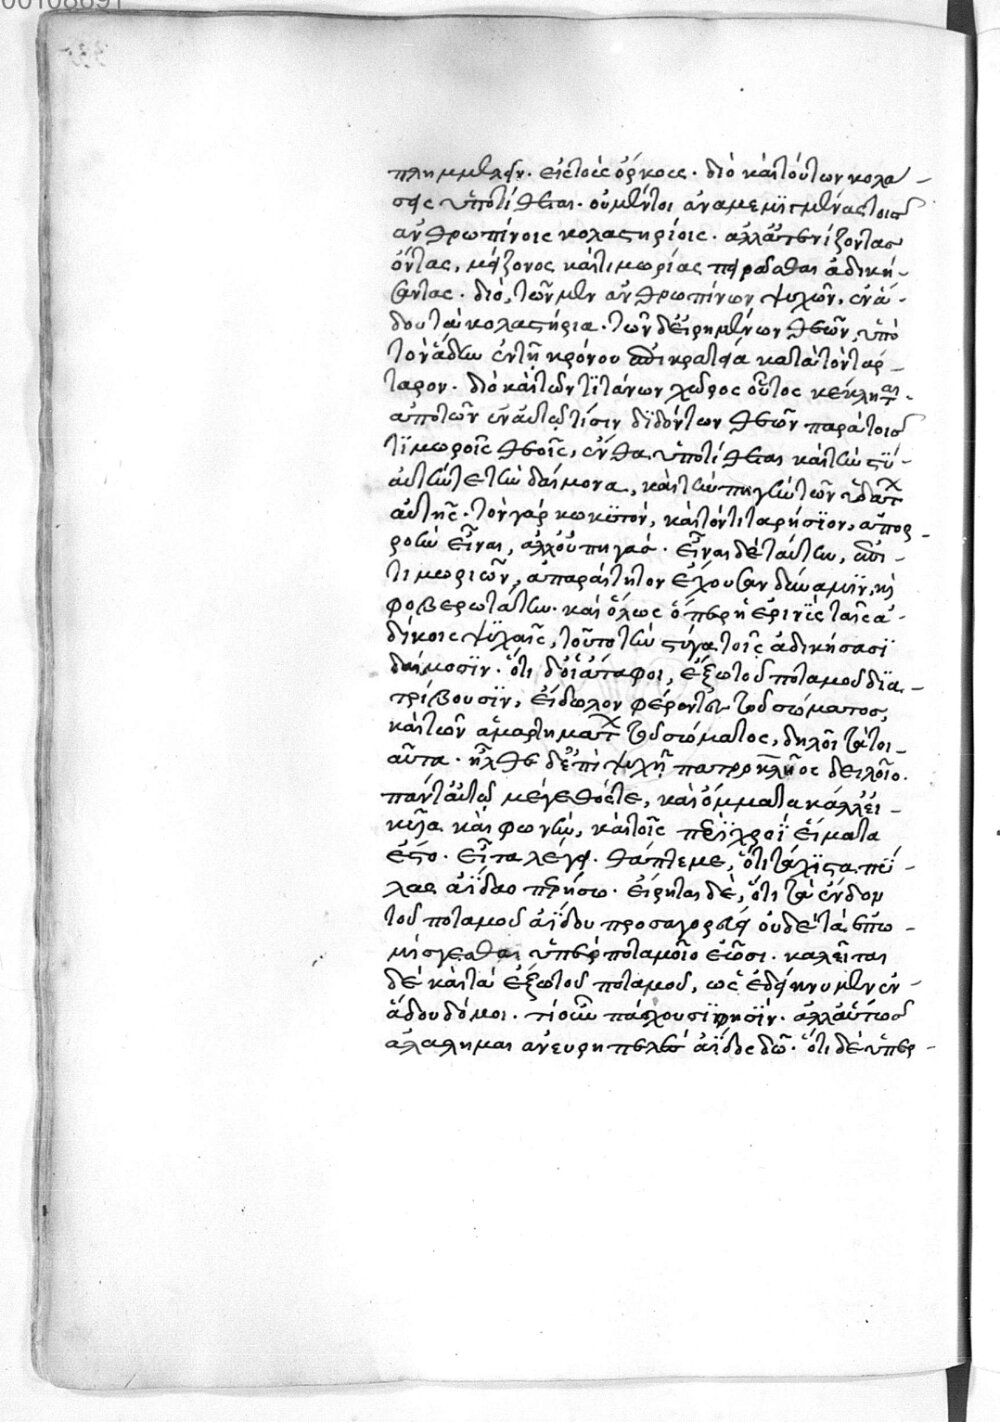 πλημμελεῖν εἰς τοὺς ὅρκους. διὸ καὶ τούτων κολά-
σεις ὑποτίθεται. οὐ μέντοι ἀναμεμιγμένας τοῖς
ἀνθρωπίνοις κολαστηρίοις. ἀλλ' ἅτε
ὄντας, μείζονος καὶ τιμωρίας πειρᾶσθαι ἀδική-
σαντας. διὸ, τῶν μὲν ἀνθρωπίνων ψυχῶν, ἐν ἅ-
δου τὰ κολαστήρια. τῶν δὲ εἰρημένων θεῶν, ὑπὸ
τὸν ἅδην ἐν τῇ κρόνου ἐπικρατείᾳ κατὰ τὸν τάρ-
ταρον. διὸ καὶ τῶν τιτάνων χῶρος οὗτος κέκληται.
ἀπὸ τῶν ἐν αὐτῷ τίσιν διδόντων θεῶν παρὰ τοῖς
τιμωροῖς θεοῖς, ἔνθα ὑποτίθεται καὶ τὴν στύ-
αὐτήν τε τὴν δαίμονα, καὶ τὴν πηγὴν τῶν ὑδάτων
αὐτῆς. τὸν γὰρ κωκυτὸν, καὶ τὸν τιταρήσιον, ἀπορ-
ροὴν εἶναι, ἀλλ' οὐ πηγάς. εἶναι δὲ ταύτην, ἐπὶ
τιμωριῶν, ἀπαραίτητον ἔχουσαν δύναμιν, καὶ
φοβερωτάτην. καὶ ὅλως ὅπερ ἡ ἐρινὺς ταῖς ἀ-
δίκοις ψυχαῖς, τοῦτο τὴν στύγα τοῖς ἀδικήσασι
δαίμοσιν. ὅτι δ' οἱ ἄταφοι, ἔξω τοῦ ποταμοῦ δια-
τρίβουσιν, εἴδωλον φέροντες τοῦ σώματος,
καὶ τῶν ἁμαρτημάτων τοῦ σώματος, δηλοῖ τὰ τοι-
αῦτα. ἦλθε δ' ἐπὶ ψυχὴ πατροκλῆος δειλοῖο.
πάντ' αὐτῷ μέγεθός τε, καὶ ὄμματα κάλλ' ἐι-
κυῖα καὶ φωνήν, καὶ τοῖς περὶ χροῒ εἵματα
ἕστο. εἶτα λέγει. θάπτε με, ὅτι τάχιστα πύ-
λας ἀΐδαο περήσω. εἴρηται δὲ, ὅτι τὰ ἔνδον
τοῦ ποταμοῦ ἀΐδου προσαγορεύει οὐδέ τά πω
μίσγεσθαι ὑπὲρ ποταμοῖο ἐῶσι. καλεῖται
δὲ καὶ τὰ ἔξω τοῦ ποταμοῦ, ὡς ἐδείκνυμεν ἐν
ἅδου δόμοι. τί οὖν πάσχουσί φησιν. ἀλλ' αὕτως
ἀλάλημαι ἀν' εὐρυπυλὲς ἄϊδος δῶ. ὅτι δὲ ὑπὲρ-